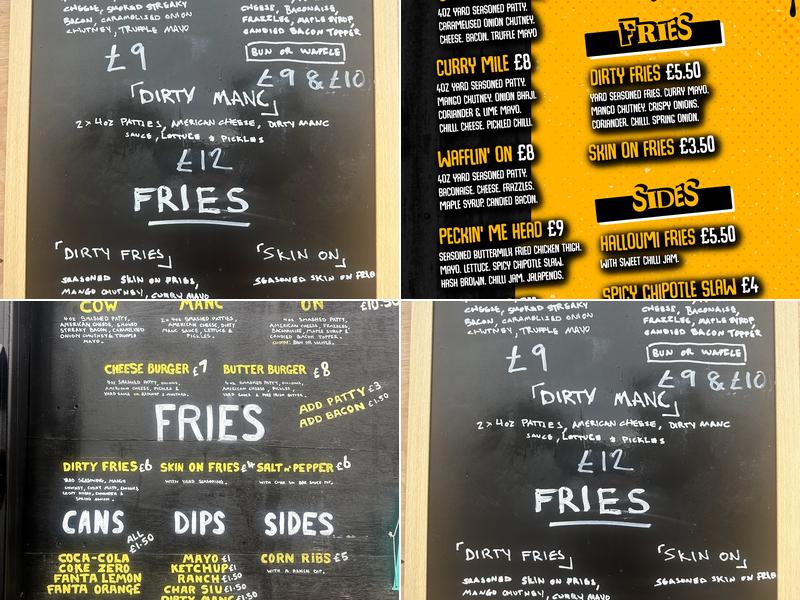 CHEESE, SMOKED STREAKY
BACON, CARAMELISED ONION
CHUTNEY, TRUFFLE MAYO
£9
CHEESE, BACONAISE,
FRAZZLES, MAPLE SYRUP,
CANDIED BACON TOPPER
BUN OR WAFFLE
£9 & £10
「DIRTY MANC」
2 × 4oz PATTIES, AMERICAN CHEESE, DIRTY MANC
SAUCE, LETTUCE & PICKLES
£12
FRIES
「DIRTY FRIES」
SEASONED SKIN ON FRIES,
MANGO CHUTNEY, CURRY MAYO
「SKIN ON」
SEASONED SKIN ON FRIE
4OZ YARD SEASONED PATTY.
CARAMELISED ONION CHUTNEY.
CHEESE. BACON. TRUFFLE MAYO
CURRY MILE £8
4OZ YARD SEASONED PATTY.
MANGO CHUTNEY. ONION BHAJI.
CORIANDER & LIME MAYO.
CHILLI. CHEESE. PICKLED CHILLI.
WAFFLIN' ON £8
4OZ YARD SEASONED PATTY.
BACONAISE. CHEESE. FRAZZLES.
MAPLE SYRUP. CANDIED BACON.
PECKIN' ME HEAD £9
SEASONED BUTTERMILK FRIED CHICKEN THIGH.
MAYO. LETTUCE. SPICY CHIPOTLE SLAW.
HASH BROWN. CHILLI JAM. JALAPENOS.
FRIES
DIRTY FRIES £5.50
YARD SEASONED FRIES. CURRY MAYO.
MANGO CHUTNEY. CRISPY ONIONS.
CORIANDER. CHILLI. SPRING ONION.
SKIN ON FRIES £3.50
SIDES
HALLOUMI FRIES £5.50
WITH SWEET CHILLI JAM.
SPICY CHIPOTLE SLAW £4
COW
4OZ SMASHED PATTY,
AMERICAN CHEESE, SMOKED
STREAKY BACON, CARAMELISED
ONION CHUTNEY & TRUFFLE
MAYO.
MANC
2x 4OZ SMASHED PATTIES,
AMERICAN CHEESE, DIRTY
MANC SAUCE, LETTUCE &
PICKLES.
ON £10.50
4OZ SMASHED PATTY,
AMERICAN CHEESE, FRAZZLES,
BACONAISE, MAPLE SYRUP &
CANDIED BACON TOPPER.
CHOOSE: BUN OR WAFFLE.
CHEESE BURGER £7
4OZ SMASHED PATTY, ONIONS,
AMERICAN CHEESE, PICKLES &
BUTTER BURGER £8
4OZ SMASHED PATTY, ONIONS,
AMERICAN CHEESE, PICKLES,
ADD PATTY £3
ADD BACON £1.50
FRIES
DIRTY FRIES £6
YARD SEASONING, MANGO
CHUTNEY, CURRY MAYO, CHILLIES,
CRISPY ONIONS, CORIANDER &
SPRING ONION.
SKIN ON FRIES £4
WITH YARD SEASONING.
SALT N' PEPPER £6
CANS
ALL £1.50
COCA-COLA
COKE ZERO
FANTA LEMON
FANTA ORANGE
DIPS
MAYO £1
KETCHUP £1
RANCH £1.50
CHAR SIU £1.50
DIRTY MANC £1.50
SIDES
CORN RIBS £5
WITH A RANCH DIP.
CHEESE, SMOKED STREAKY
BACON, CARAMELISED ONION
CHUTNEY, TRUFFLE MAYO
£9
CHEESE, BACONAISE,
FRAZZLES, MAPLE SYRUP,
CANDIED BACON TOPPER
BUN OR WAFFLE
£9 & £10
「DIRTY MANC」
2 × 4oz PATTIES, AMERICAN CHEESE, DIRTY MANC
SAUCE, LETTUCE & PICKLES
£12
FRIES
「DIRTY FRIES」
SEASONED SKIN ON FRIES,
MANGO CHUTNEY, CURRY MAYO
「SKIN ON」
SEASONED SKIN ON FRIE